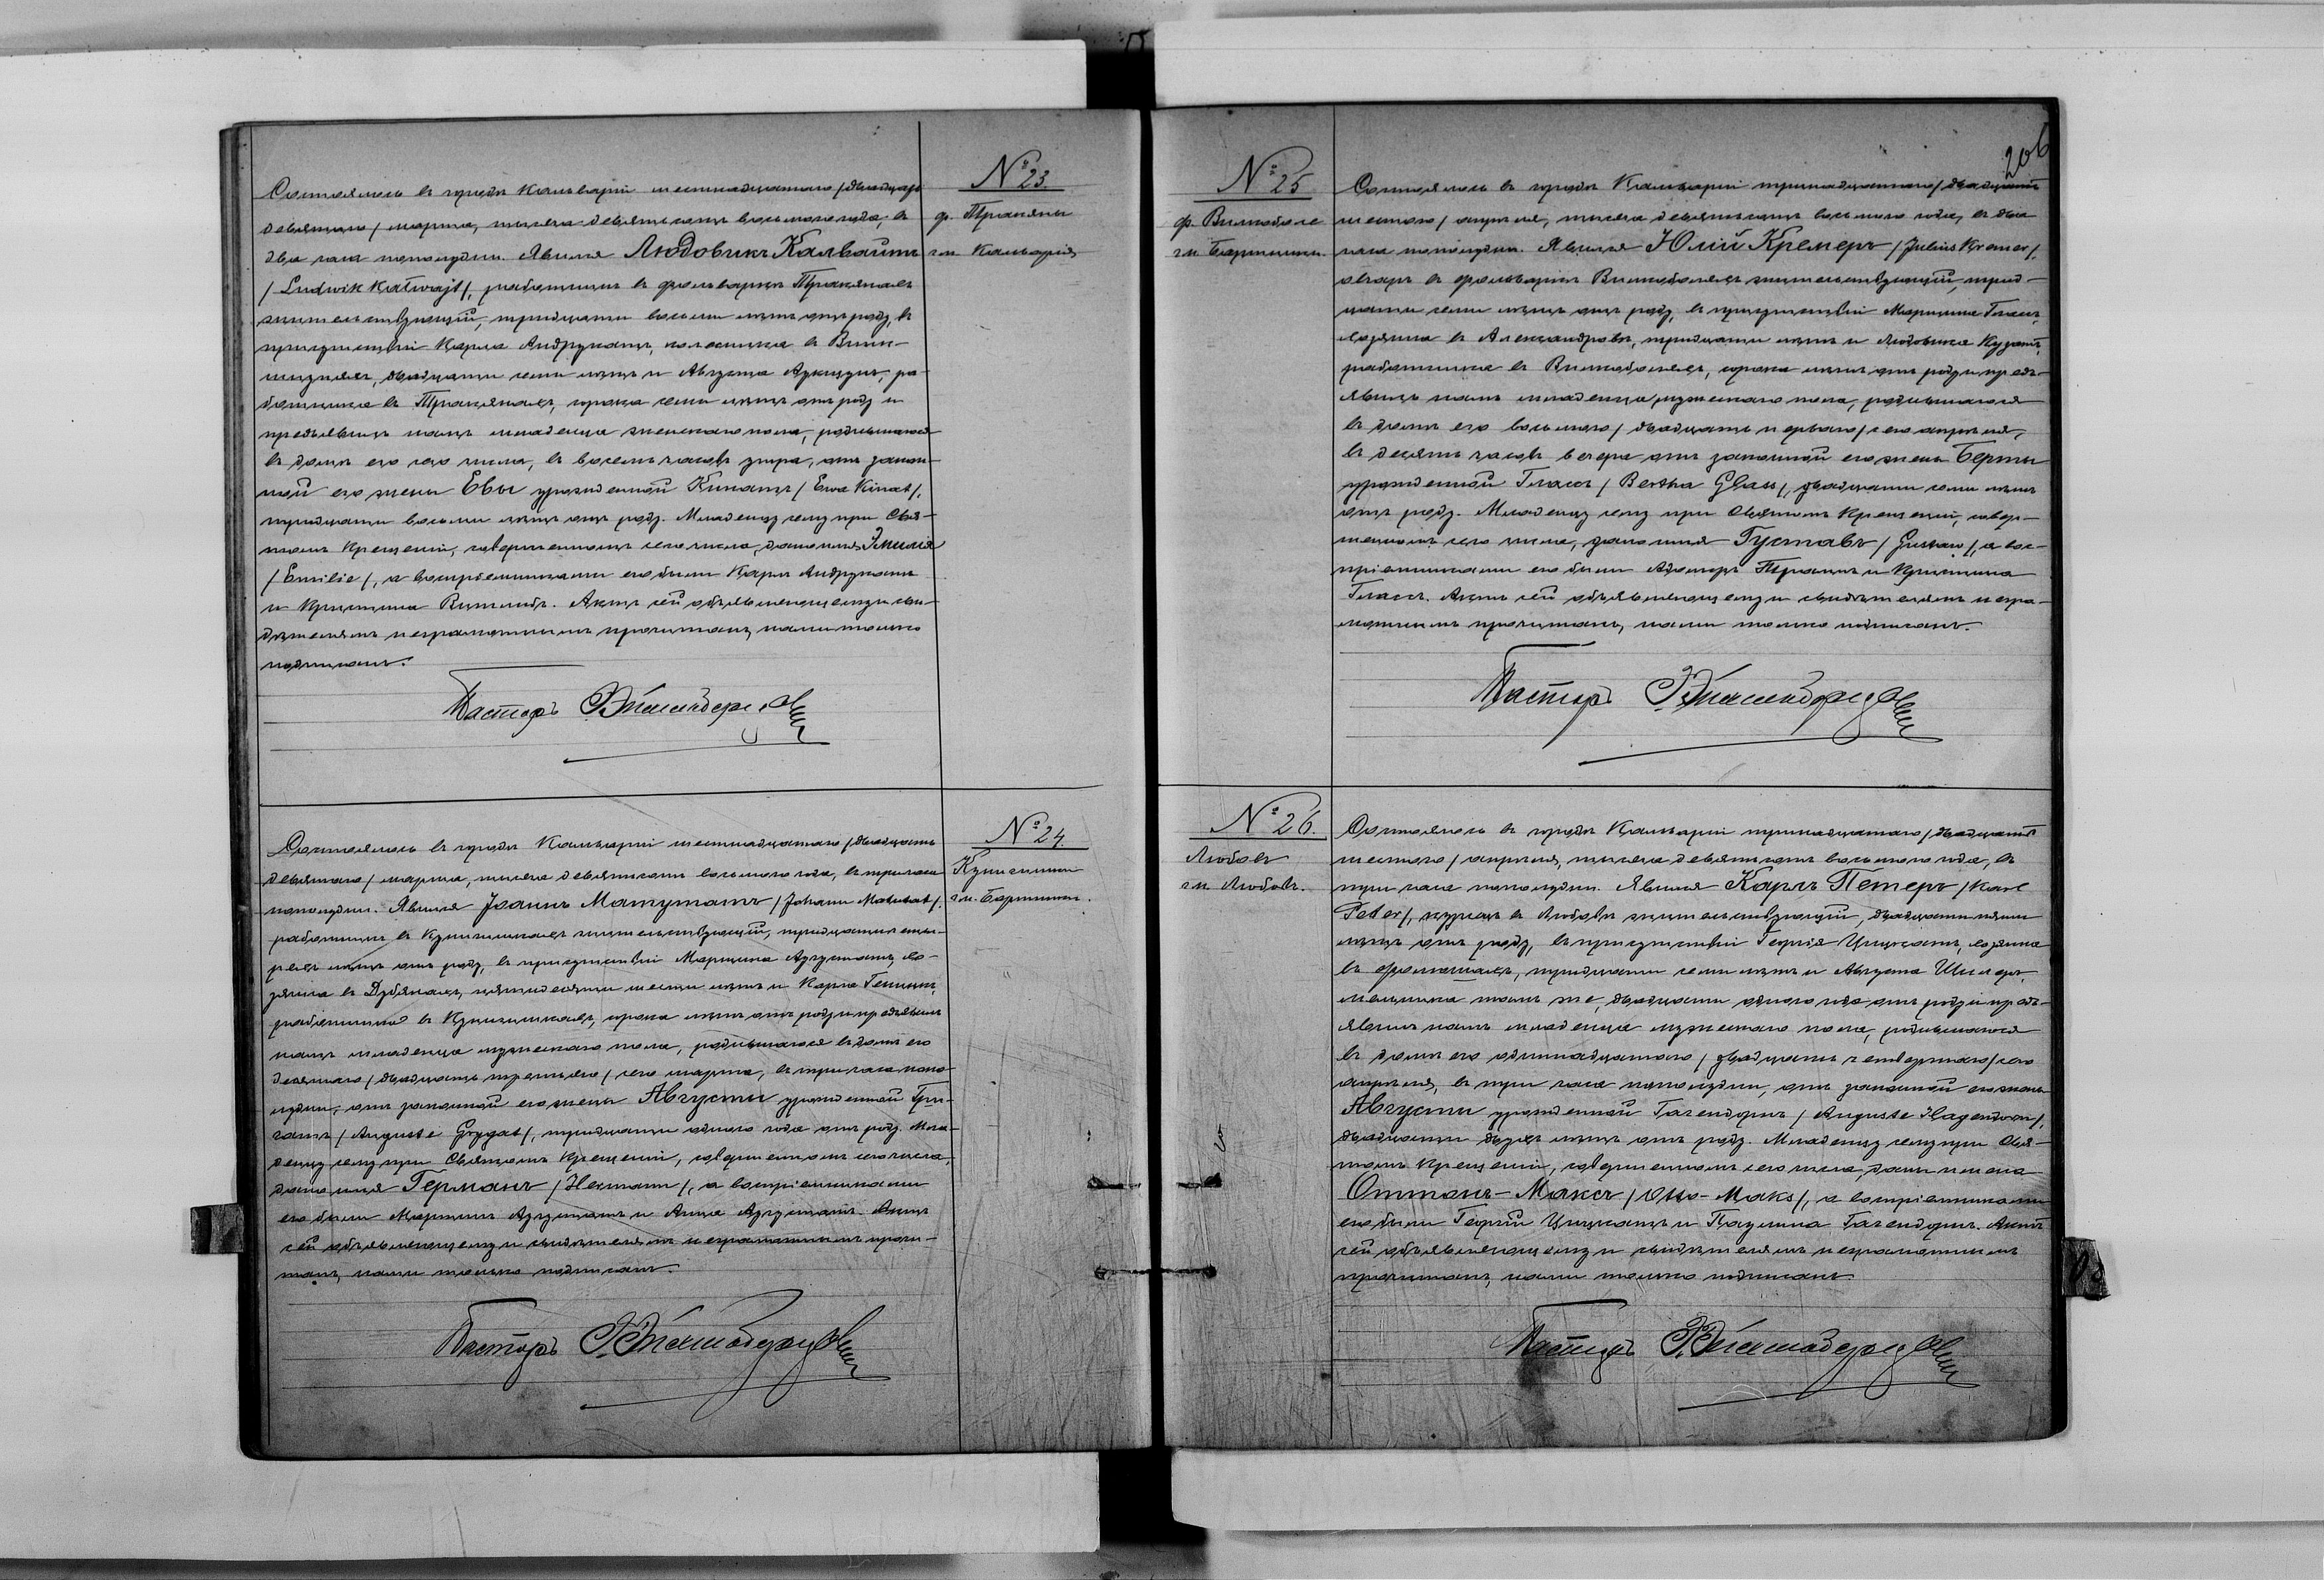 № 23.
ф. Тракяны
гм. Кальварія
Состоялось въ городѣ Кальваріи шестнадцатаго /двадцать
девятаго/ марта, тысяча девятьсотъ восьмого года, въ
два часа пополудни. Явился Людовикъ Калвайтъ
/Ludwik Kalwajt/, работникъ въ фольваркѣ Тракянахъ
жительствующій, тридцати восьми лѣтъ отъ роду, въ
присутствіи Карла Андруката, колесника въ
двадцати семи лѣтъ и Августа ра-
ботника въ Тракянахъ, сорока семи лѣтъ отъ роду и
предъявилъ намъ младенца женскаго пола, родившагося
въ домѣ его сего числа, въ восемь часовъ утра, отъ закон-
ной его жены Евы урожденной Кинатъ /Ewa Kinat/,
тридцати восьми лѣтъ отъ роду. Младенцу сему при Свя-
томъ Крещеніи, совершенномъ сего числа, дано имя Эмилія
/Emilie/, а воспріемниками его были Карлъ Андрукатъ
и Кристина Актъ сей объявляющему и сви-
дѣтелямъ неграмотнымъ прочитанъ, нами только
подписанъ.
Пасторъ
№ 24.
гм. Бартники.
Состоялось въ городѣ Кальваріи шестнадцатаго /двадцать
девятаго/ марта, тысяча девятьсотъ восьмого года, въ три часа
пополудни. Явился Іоаннъ Матутатъ /Johann Matutat/,
работникъ въ жительствующій, тридцати четы-
рехъ лѣтъ отъ роду, въ присутствіи Мартина Аугустатъ, хо-
зяина въ Дубянахъ, пятидесяти шести лѣтъ и Карла
работника въ сорока лѣтъ отъ роду и предъявилъ
намъ младенца мужескаго пола, родившагося въ домѣ его
десятаго /двадцать третьяго/ сего марта, въ три часа попо-
лудни, отъ законной его жены Августы урожденной Гры-
гатъ /Auguste Grygat/, тридцати одного года отъ роду. Мла-
денцу сему при Святомъ Крещеніи, совершенномъ сего числа,
дано имя Германъ /Hermann/, а воспріемниками
его были Мартинъ Аугустатъ и Анна Аугустатъ. Актъ
сей объявляющему и свидѣтелямъ неграмотнымъ прочи-
танъ, нами только подписанъ.
Пасторъ
206
№ 25
ф. Вилкоболе
гм. Бартники.
Состоялось въ городѣ Кальваріи тринадцатаго /двадцать
шестого/ апрѣля, тысяча девятьсотъ восьмого года, въ два
часа пополудни. Явился Юлій Кремеръ /Julius Kremer/,
овчаръ въ фольваркѣ Вилкоболехъ жительствующій, трид-
цати семи лѣтъ отъ роду, въ присутствіи Мартина Глассъ,
хозяина въ Александровѣ, тридцати лѣтъ и Людовика
работника въ Вилкоболехъ, сорока лѣтъ отъ роду и предъ-
явилъ намъ младенца мужескаго пола, родившагося
въ домѣ его восьмого /двадцать перваго/ сего апрѣля,
въ десять часовъ вечера отъ законной его жены Берты
урожденной Глассъ /Bertha Glass/, двадцати семи лѣтъ
отъ роду. Младенцу сему при Святомъ Крещеніи, совер-
шенномъ сего числа, дано имя Густавъ /Gustaw/, а вос-
пріемниками его были Адольфъ и Кристина
Глассъ. Актъ сей объявляющему и свидѣтелямъ негра-
мотнымъ прочитанъ, нами только подписанъ.
Пасторъ
№ 26.
Любовъ
гм. Любовъ.
Состоялось въ городѣ Кальваріи тринадцатаго /двадцать
шестого/ апрѣля, тысяча девятьсотъ восьмого года, въ
три часа пополудни. Явился Карлъ Петеръ /Karl
Peter/, кузнецъ въ Любовѣ жительствующій, двадцати пяти
лѣтъ отъ роду, въ присутствіи Георгія хозяина
въ тридцати семи лѣтъ и Августа
мельника тамъ же, двадцати одного года отъ роду и предъ-
явилъ намъ младенца мужескаго пола, родившагося
въ домѣ его одиннадцатаго /двадцать четвертаго/ сего
апрѣля, въ три часа пополудни, отъ законной его жены
Августы урожденной Гагендорнъ /Auguste Hagendorn/,
двадцати двухъ лѣтъ отъ роду. Младенцу сему при Свя-
томъ Крещеніи, совершенномъ сего числа, даны имена
Оттонъ-Максъ /Otto-Maks/, а воспріемниками
его были Георгій и Паулина Гагендорнъ. Актъ
сей объявляющему и свидѣтелямъ неграмотнымъ
прочитанъ, нами только подписанъ.
Пасторъ